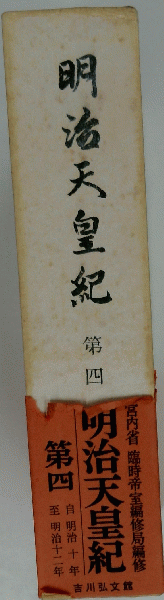 明治天皇紀
第四
宮内省 臨時帝室編修局編修
明治天皇紀
第四
自明治十年
至明治十二年
吉川弘文館